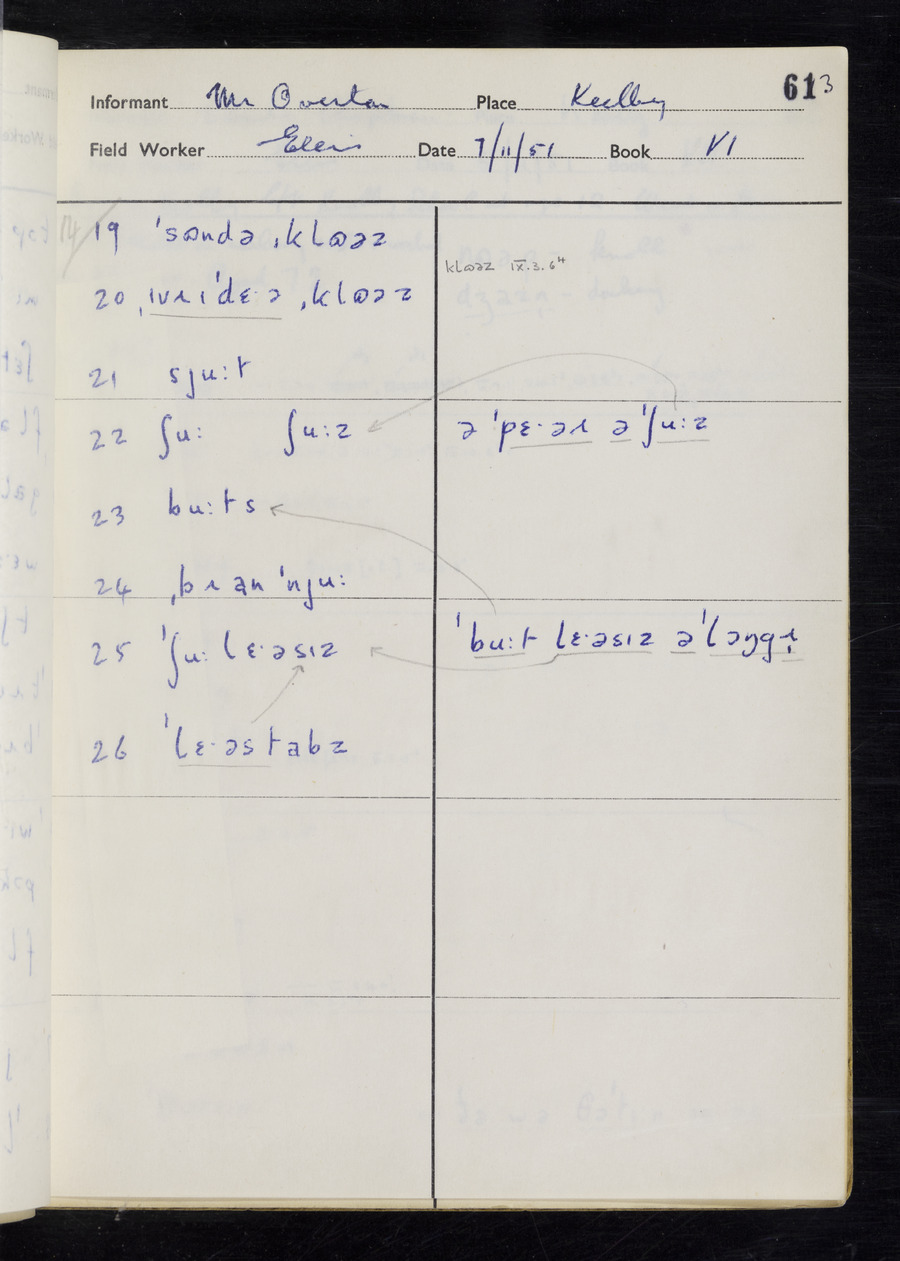 613
Informant Mr Overton Place Keelby
Field Worker Ellis Date 7/11/51 Book VI
14
19 ˈsɷndə ˌklɷəz
klɷəz IX.3.6⁴
20 ˌɪvɹɪˈdɛ·ə ˌklɷəz
21 sju:t
22 ʃu: ʃu:z
ə ˈpɛ·əɹ ə ˈʃu:z
23 bu:ts
24 ˌbɹanˈnju:
25 ˈʃu: lɛ·əsɪz
ˈbu:t lɛ·əsɪz ə ˈləŋgɹ̩
26 ˈlɛ·əstabz